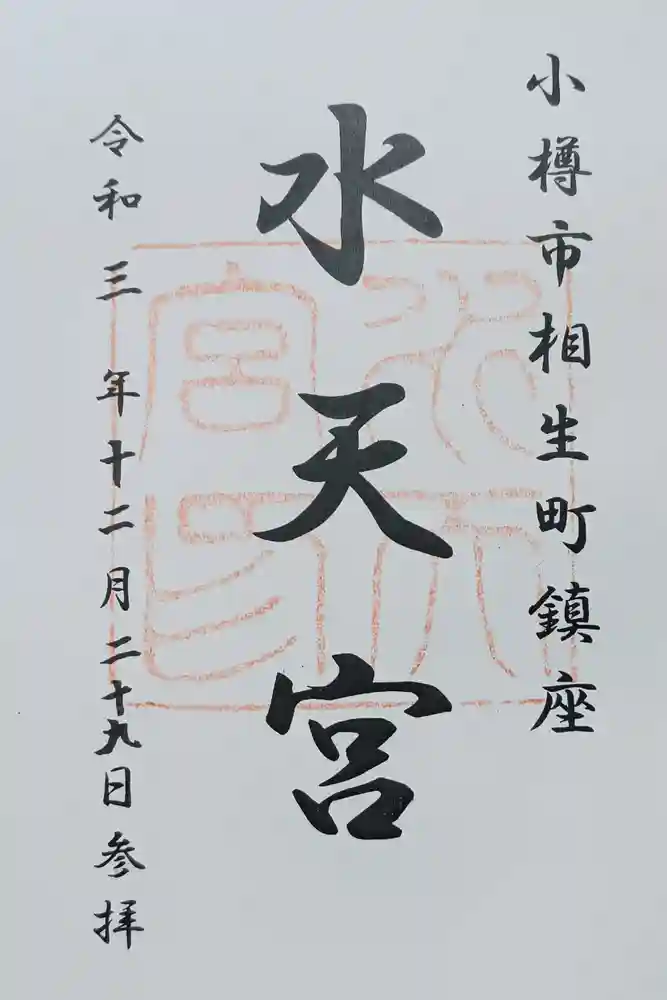 小樽市相生町鎮座
水天宮
令和三年十二月二十九日参拝
水天宮印